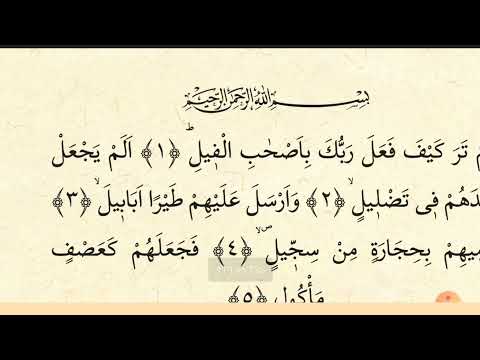 بِسْمِ اللهِ الرَّحْمٰنِ الرَّحِيمِ
مْ تَرَ كَيْفَ فَعَلَ رَبُّكَ بِاَصْحَابِ الْفٖيلِؕ ﴿١﴾ اَلَمْ يَجْعَلْ
دَهُمْ فٖى تَضْلٖيلٍۙ ﴿٢﴾ وَاَرْسَلَ عَلَيْهِمْ طَيْرًا اَبَابٖيلَۙ ﴿٣﴾
ميهِمْ بِحِجَارَةٍ مِنْ سِجّٖيلٍۙ ﴿٤﴾ فَجَعَلَهُمْ كَعَصْفٍ
مَأْكُولٍ ﴿٥﴾